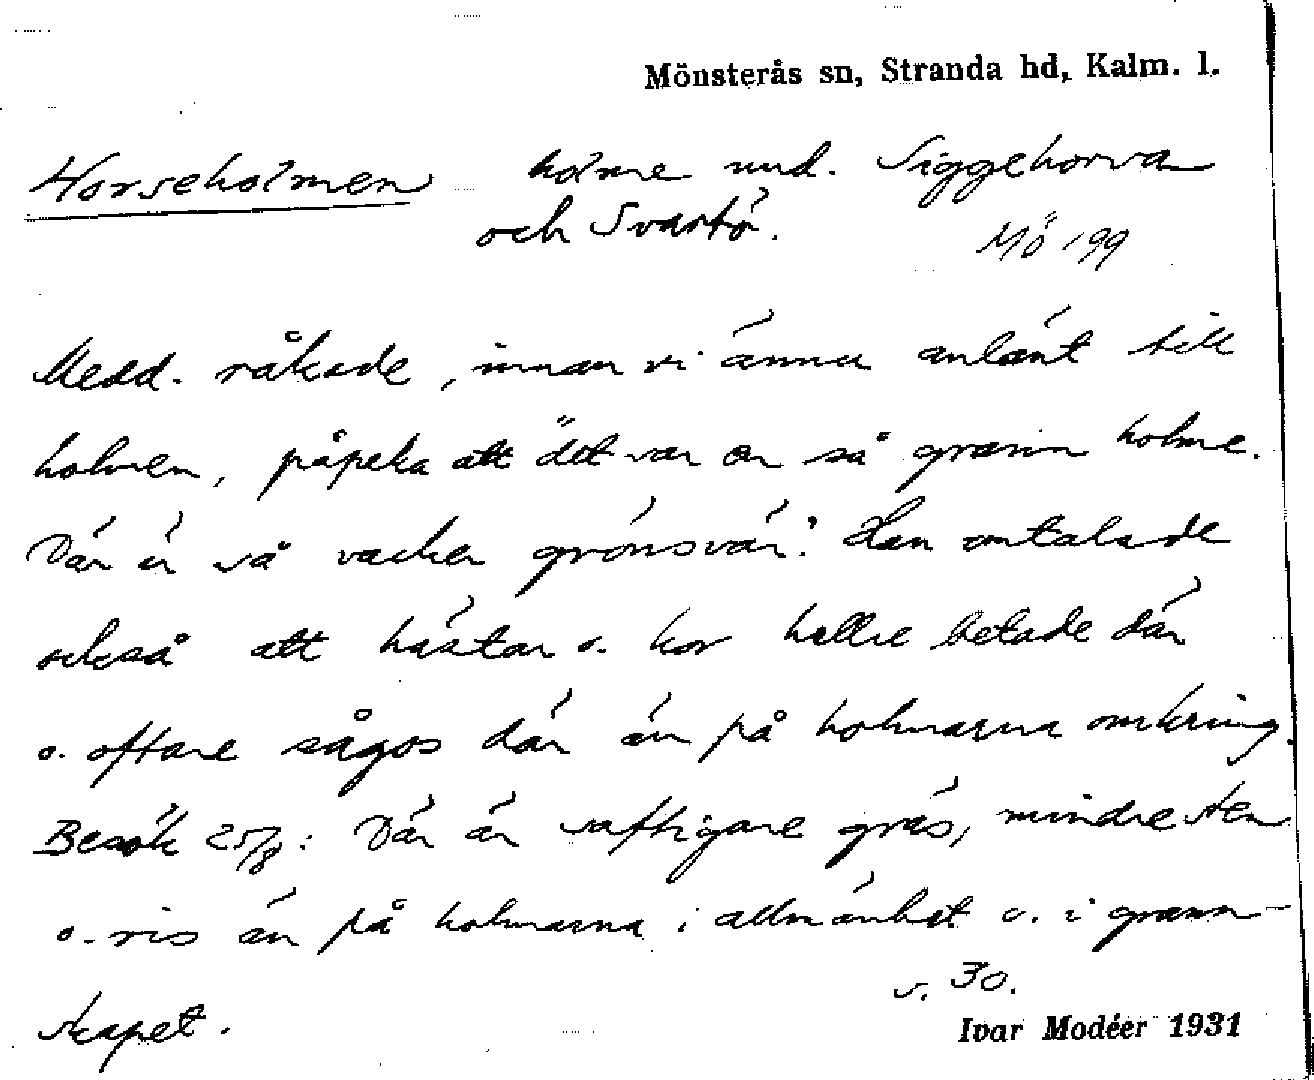 Mönsterås sn, Stranda hd, Kalm. l.
Horseholmen holme und. Siggehorva
och Svartö.
Mö 199
Medd. råkade, innan vi ännu anlänt till
holmen, påpeka att "det var en så grann holme.
Där är så vacker grönsvär". Han omtalade
också att hästar o. kor hellre betade där
o. oftare sågos där än på holmarna omkring.
Besök 25/8: Där är saftigare gräs, mindre sten
o. ris än på holmarna i allmänhet o. i grann-
skapet.
s. 30.
Ivar Modéer 1931